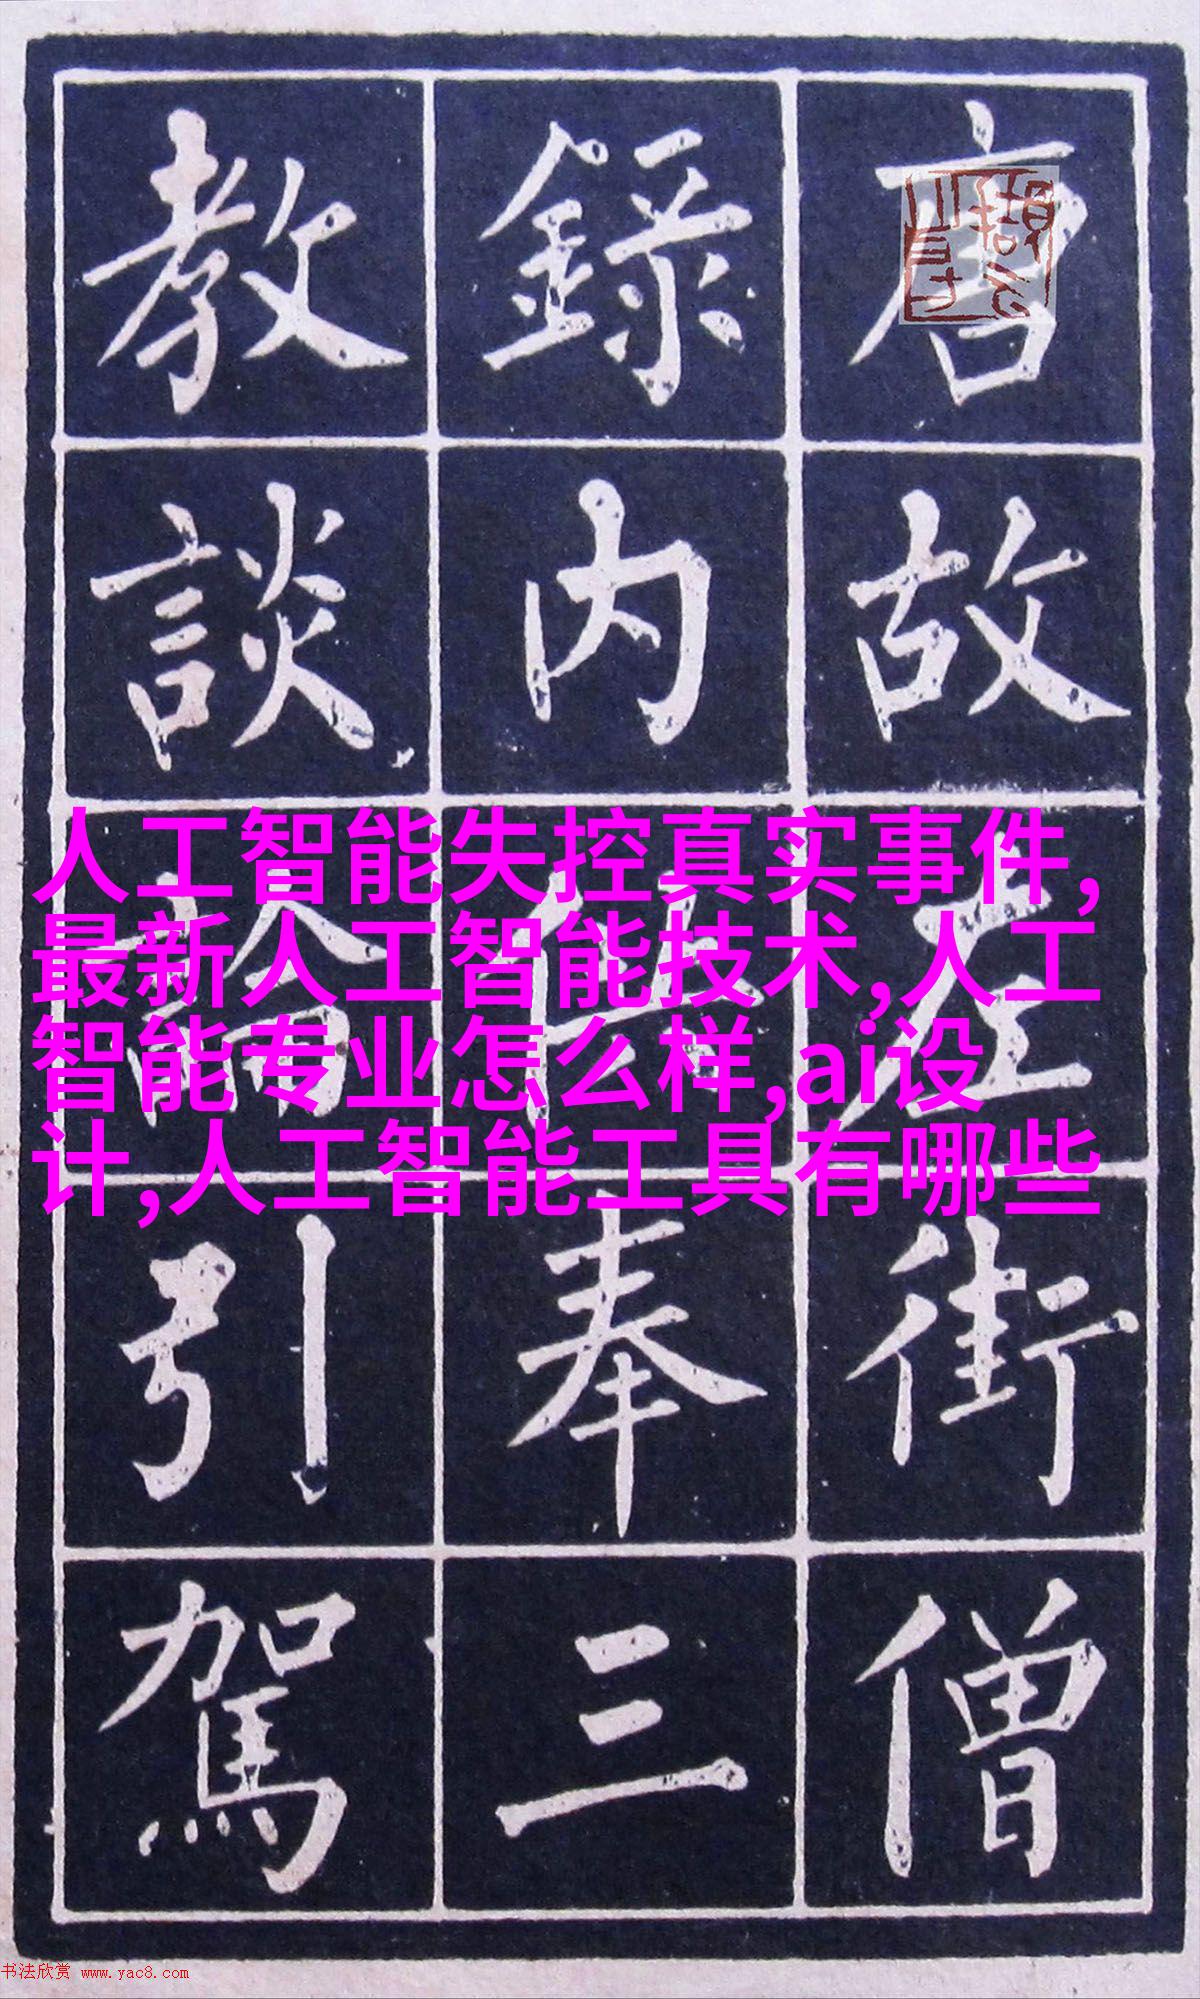 唐故左街僧
錄內供奉三
教談論引駕
人工智能失控真实事件,
最新人工智能技术,人工
智能专业怎么样,ai设
计,人工智能工具有哪些
书法欣赏 www.yac8.com